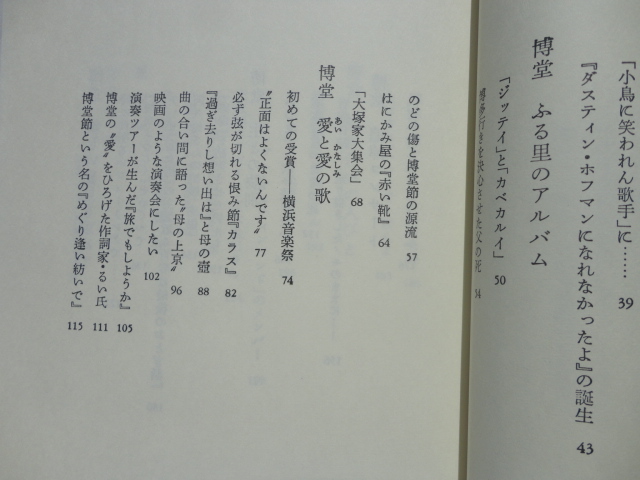 「小鳥に笑われん歌手」に…… 39
『ダスティン・ホフマンになれなかったよ』の誕生 43
博堂 ふる里のアルバム
「ジッテイ」と「カベカルイ」 50
博堂行きを決心させた父の死 54
のどの傷と博堂節の源流 57
はにかみ屋の『赤い靴』 64
「大塚家大集会」 68
博堂 愛と愛の歌
あい かなしみ
初めての受賞――横浜音楽祭 74
〝正面はよくないんです〟 77
必ず弦が切れる恨み節『カラス』 82
『過ぎ去りし想い出は』と母の壺 88
曲の合い間に語った〝母の上京〟 96
映画のような演奏会にしたい 102
演奏ツアーが生んだ『旅でもしようか』 105
博堂の〝愛〟をひろげた作詞家・るい氏 111
博堂節という名の『めぐり逢い紡いで』 115